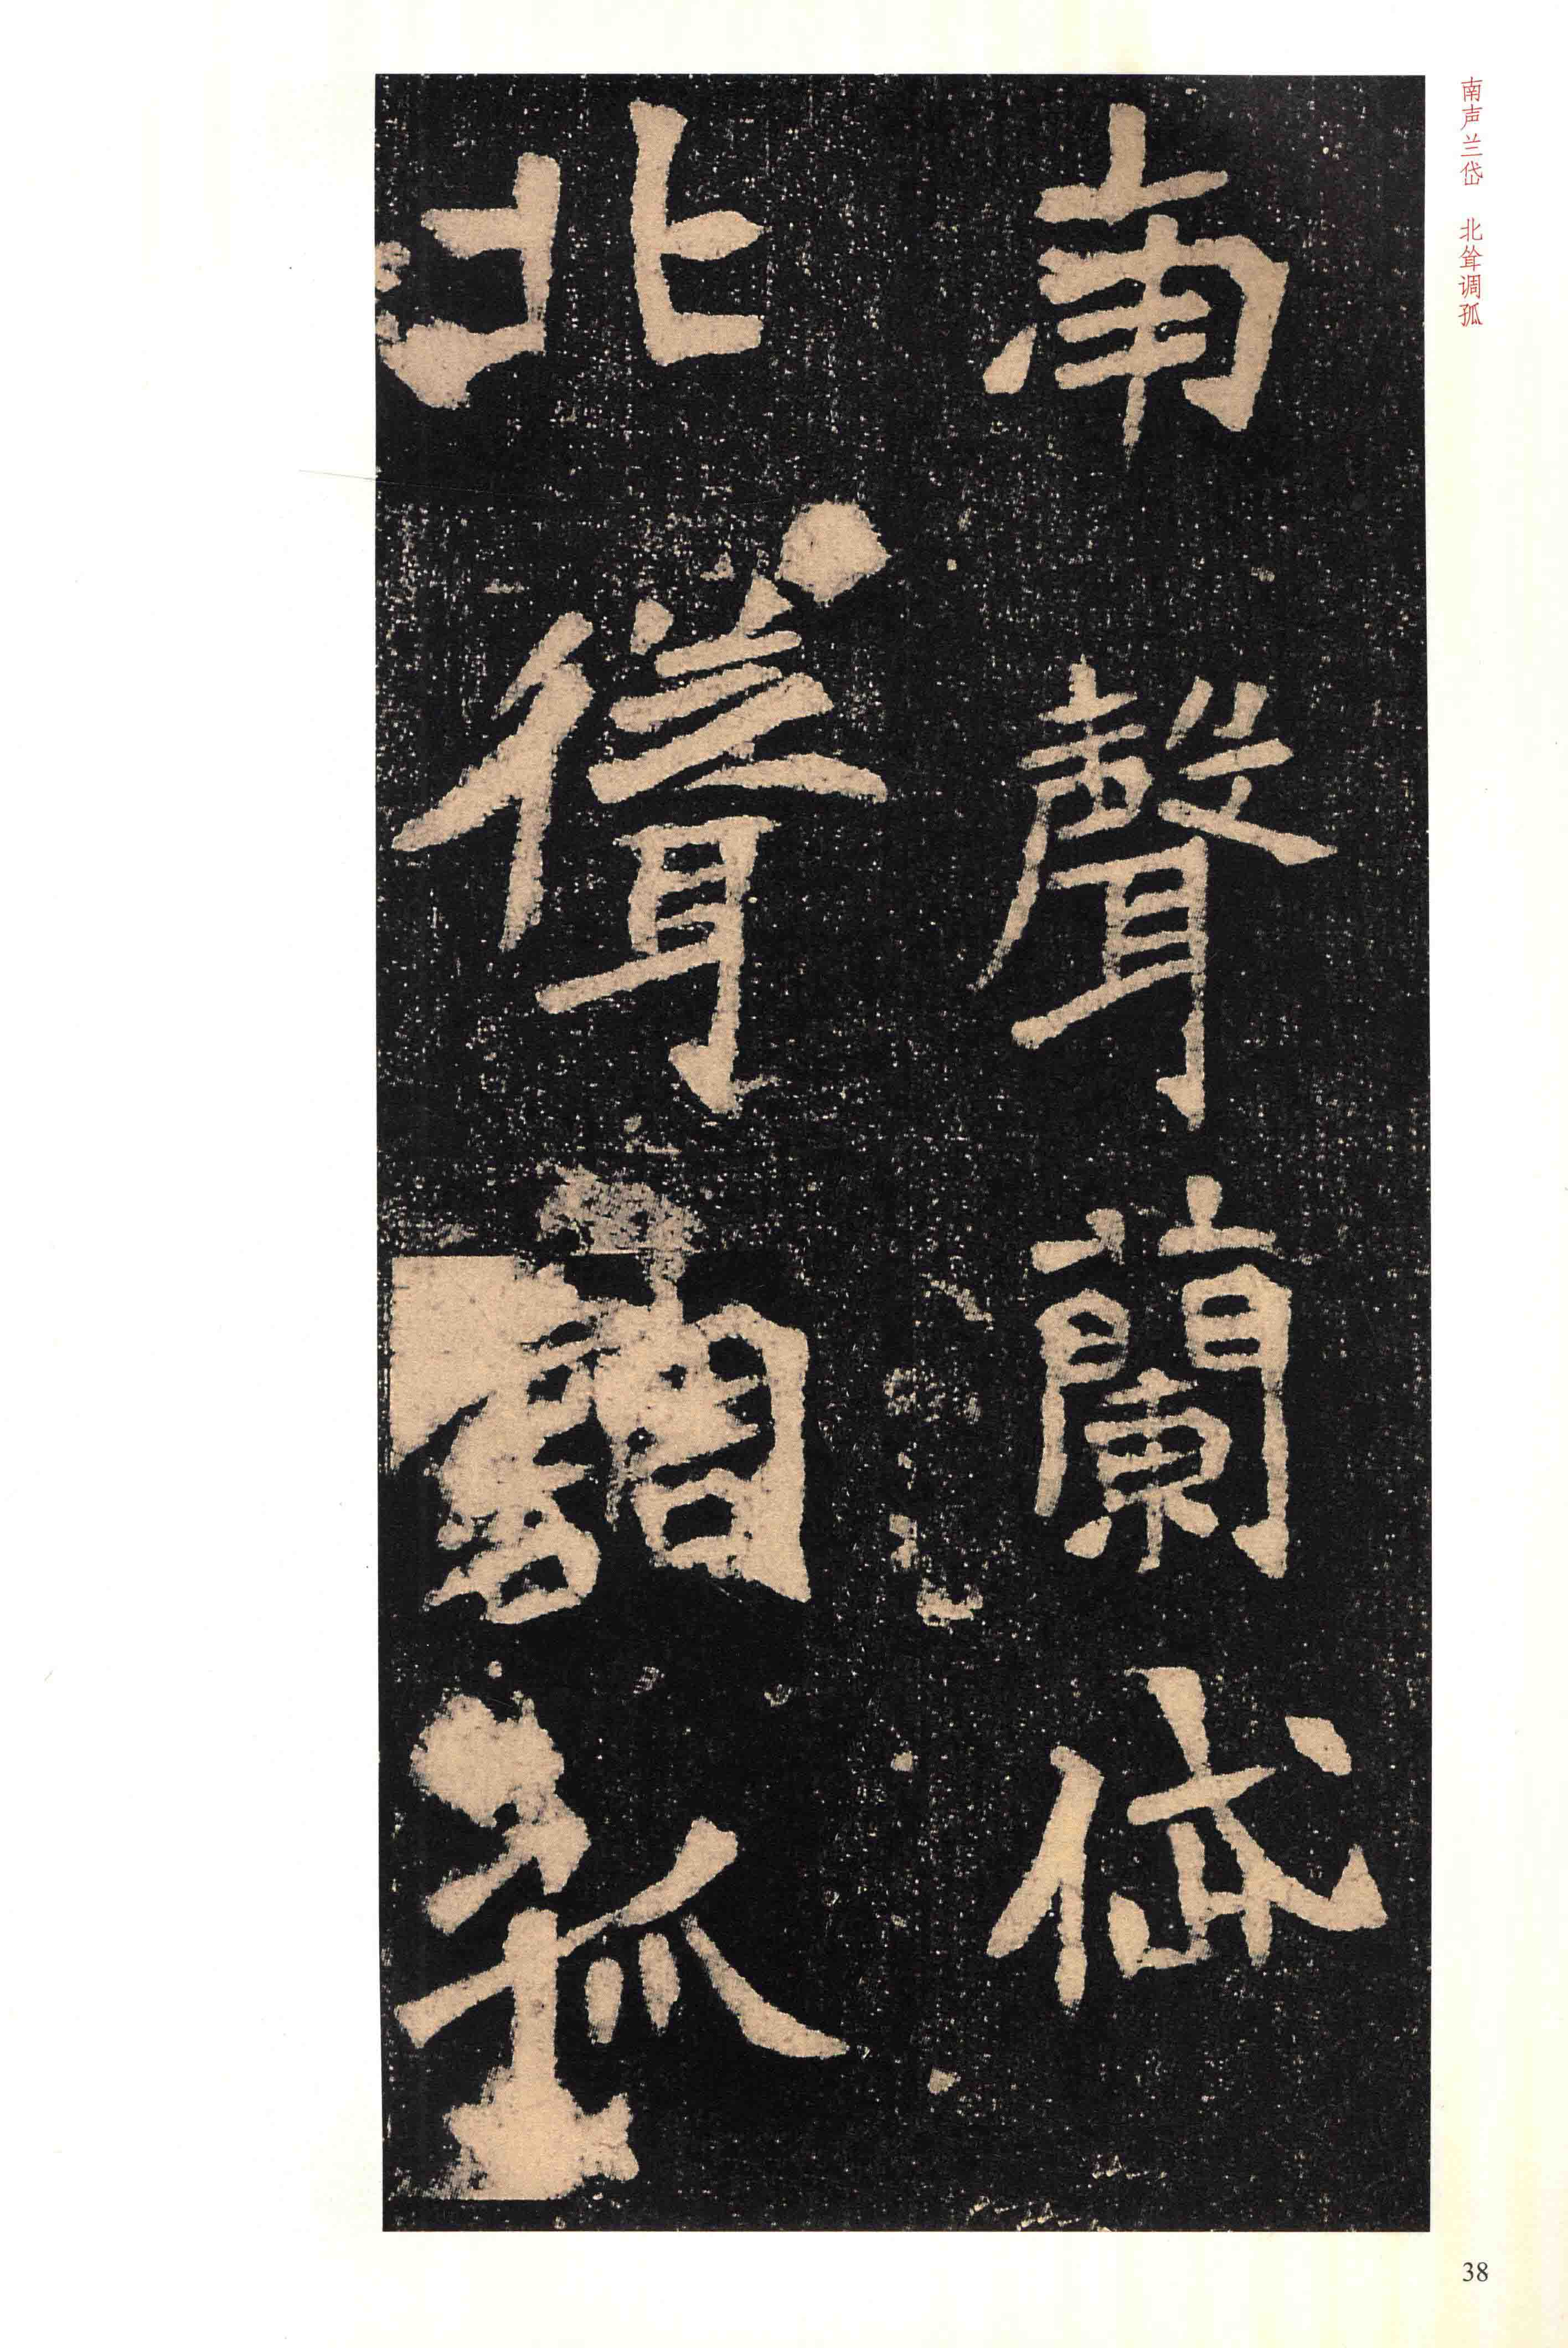 南声兰岱 北耸调孤
南聲蘭岱
北聳調孤
38